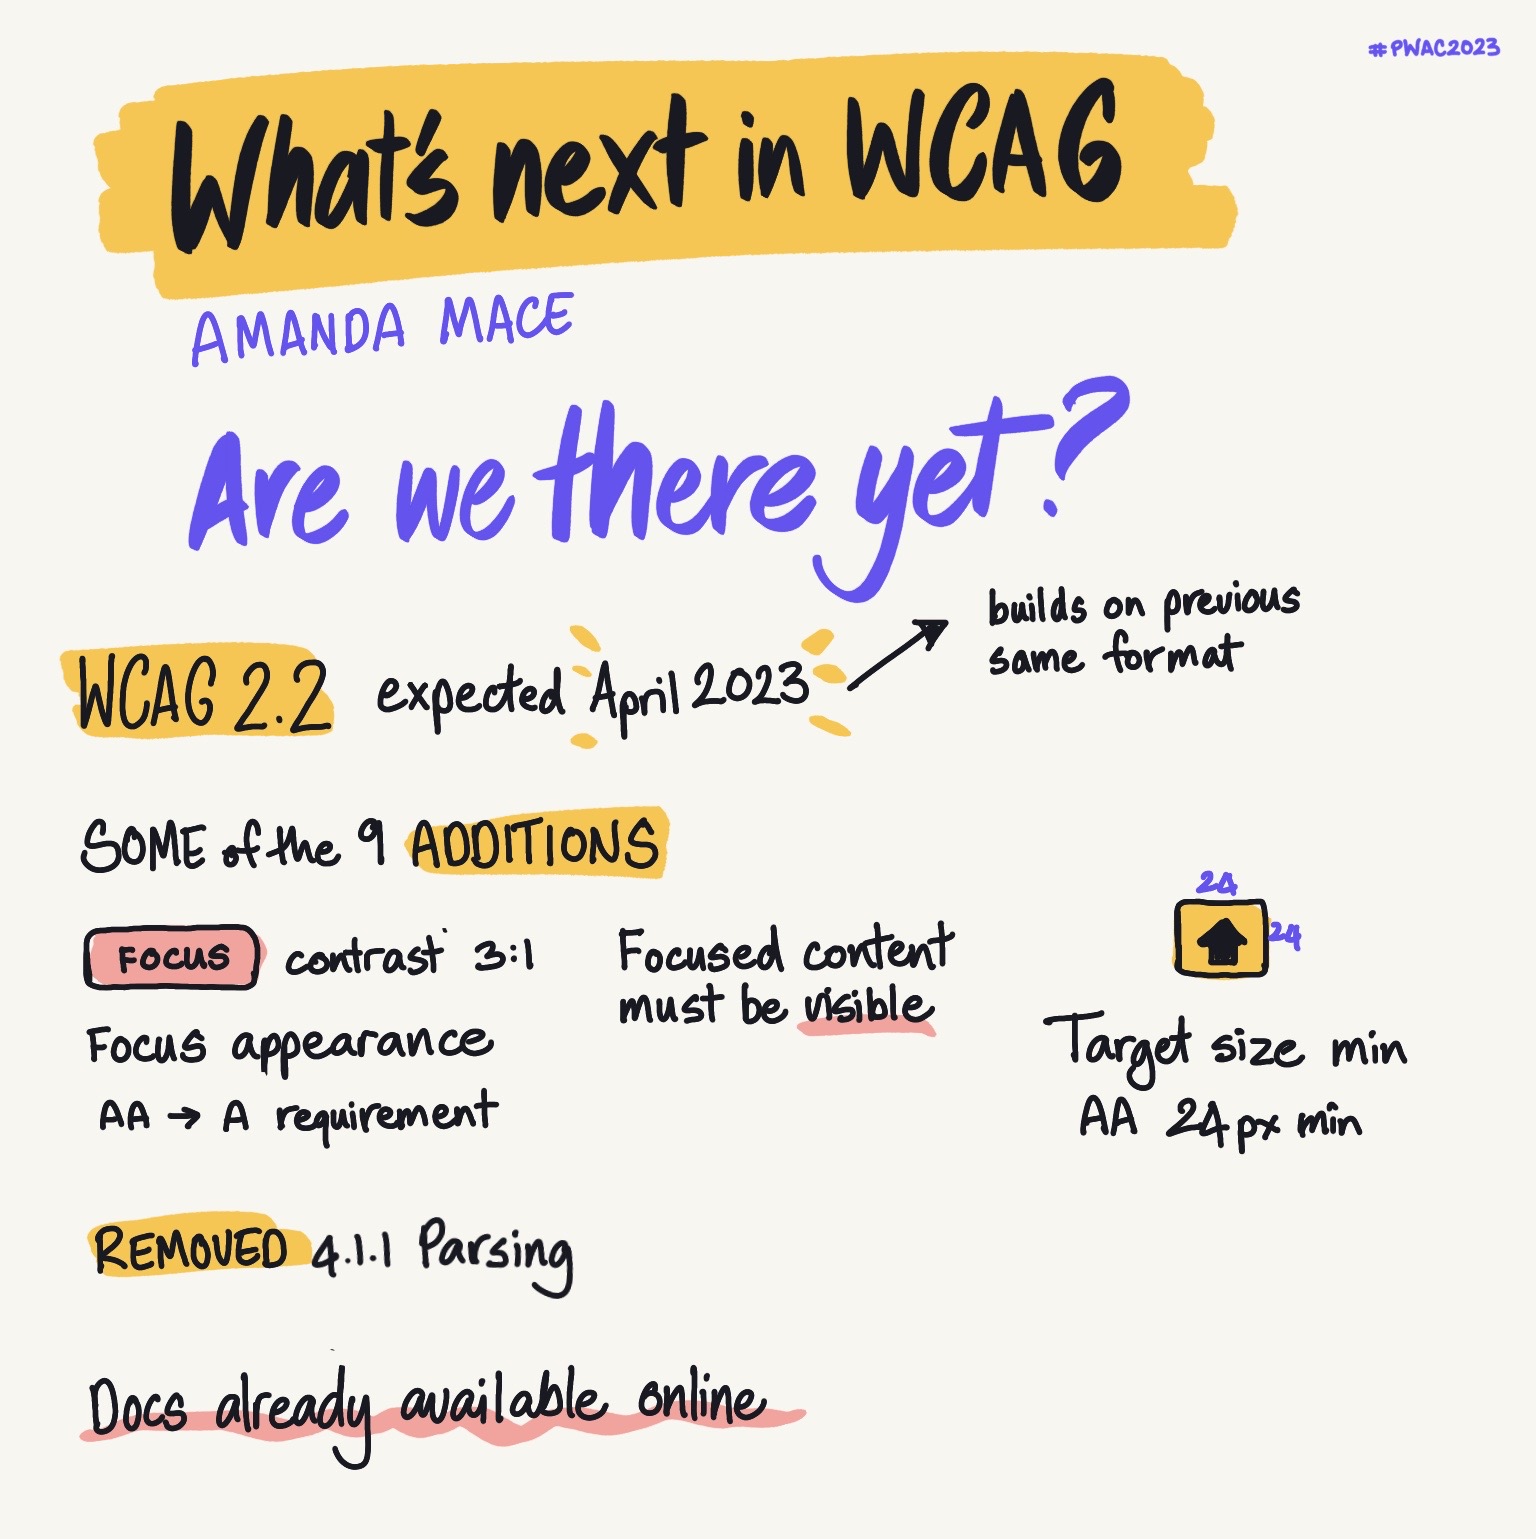 #PWAC2023
What's next in WCAG
AMANDA MACE
Are we there yet?
WCAG 2.2 expected April 2023
builds on previous
same format
SOME of the 9 ADDITIONS
FOCUS contrast 3:1
Focus appearance
AA → A requirement
Focused content
must be visible
24
24
Target size min
AA 24px min
REMOVED 4.1.1 Parsing
Docs already available online